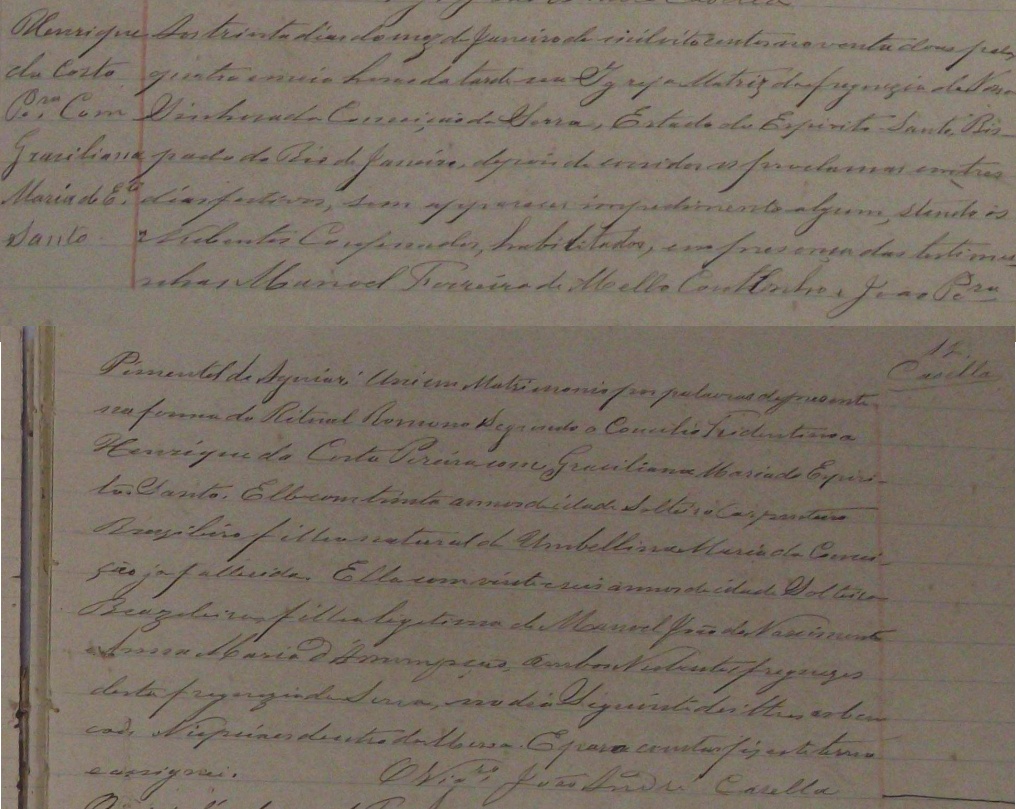 Henrique
da Costa
Prª. Com
Grasiliana
Maria do E.
Santo
Aos trinta dias do mez de Janeiro de mil oito centos noventa dous pelas
quatro e meia horas da tarde na Igreja Matriz da freguezia de Nossa
Sinhora da Conceição da Serra, Estado do Espirito Santo, Bis-
pado do Rio de Janeiro, depois de corridos os proclamas em tres
dias festivos, sem apparecer impedimento algum, stando os
Nubentes Confessados, habilitados, em presença das testimu-
nhas Manoel Ferreira de Mello Coutinho e João Prª
12
Casella
Pimentel de Aguiar Uni em Matrimonio por palavras de presente
na forma do Ritual Romano Segundo o Concilio Tridentino a
Henrique da Costa Pereira com Grasiliana Maria do Espiri-
to Santo. Elle com trinta annos de idade Solteiro Carpinteiro
Brazileiro filho natural de Umbellina Maria da Concei-
ção ja fallecida. Ella com vinte e seis annos de idade Solteira
Brazileira, filha legitima de Manoel João do Nascimento
e Anna Maria d'Assumpção, ambos Nubentes freguezes
desta freguezia da Serra, no dia Siguinte
dentro da Missa. E para constar fiz este termo
e assignei.
O Vigrº João André Casella